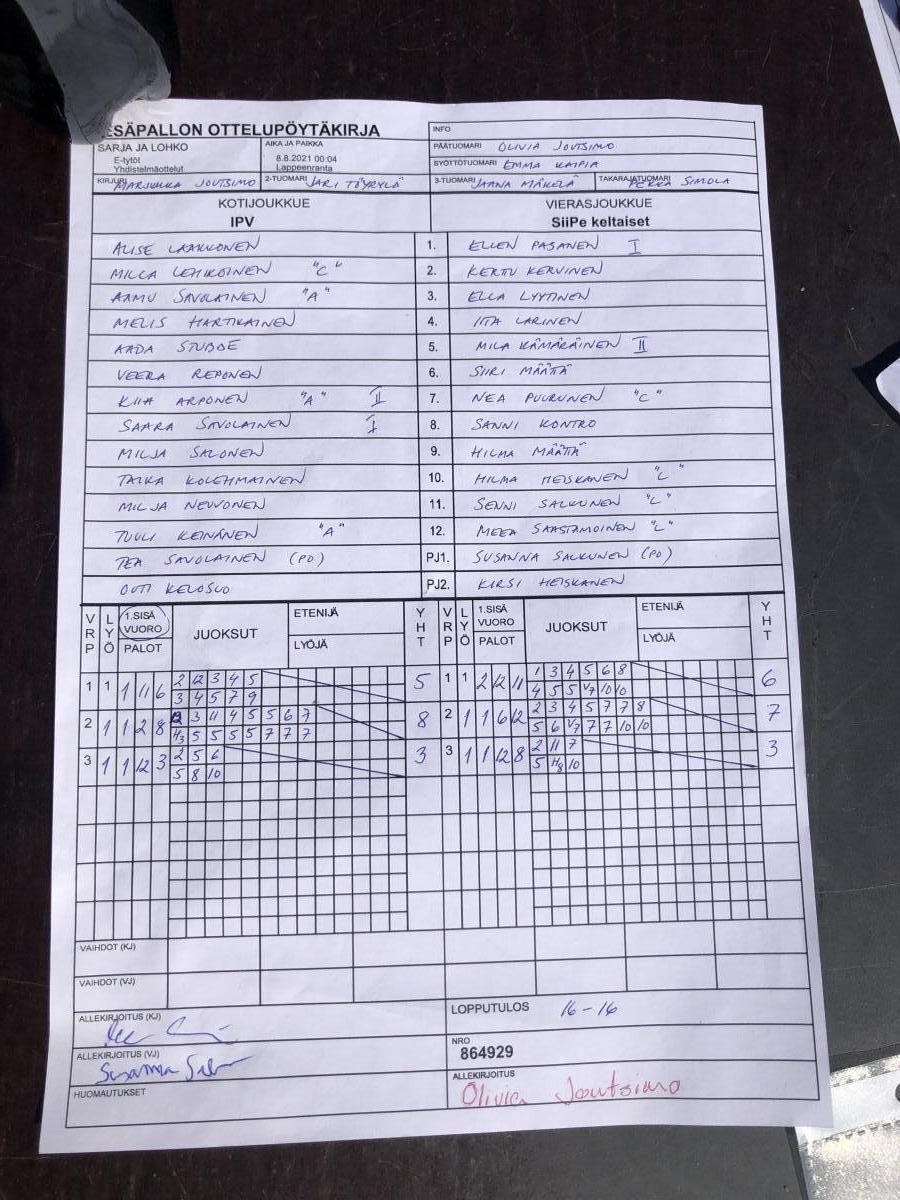 ESÄPALLON OTTELUPÖYTÄKIRJA
INFO
SARJA JA LOHKO
E-tytöt
Yhdistelmäottelut
AIKA JA PAIKKA
8.8.2021 00:04
Lappeenranta
PÄÄTUOMARI OLIVIA JOUTSIMO
SYÖTTÖTUOMARI EMMA KAIPIA
KIRJURI MARJUKKA JOUTSIMO
2-TUOMARI JARI TÖYRYLÄ
3-TUOMARI JAANA MÄKELÄ
TAKARAJATUOMARI PEKKA SIMOLA
KOTIJOUKKUE
IPV
VIERASJOUKKUE
SiiPe keltaiset
ALISE LAAKKONEN 1. ELLEN PASANEN I
MILLA LEHIKOINEN "C" 2. KERTU KERVINEN
AAMU SAVOLAINEN "A" 3. ELLA LYYTINEN
MELIS HARTIKAINEN 4. IITA LARINEN
AADA STUBBE 5. MILA KÄMÄRÄINEN II
VEERA REPONEN 6. SIIRI MÄÄTTÄ
KIIA ARPONEN "A" II 7. NEA PUURUNEN "C"
SAARA SAVOLAINEN I 8. SANNI KONTRO
MILJA SALONEN 9. HILMA MÄÄTTÄ
TAIKA KOLEHMAINEN 10. HILMA HEISKANEN "L"
MILJA NEUVONEN 11. SENNI SALKUNEN "L"
TUULI KEINÄNEN "A" 12. MEEA SAASTAMOINEN "L"
TEA SAVOLAINEN (PO) PJ1. SUSANNA SALKUNEN (PO)
OUTI KELOSUO PJ2. KIRSI HEISKANEN
VRP LYÖ 1.SISÄ VUORO PALOT JUOKSUT ETENIJÄ LYÖJÄ YHT VRP LYÖ 1.SISÄ VUORO PALOT JUOKSUT ETENIJÄ LYÖJÄ YHT
1 1 1 11 6 2 12 3 4 5 5 1 1 2 12 11 1 3 4 5 6 8 6
3 4 5 7 9 4 5 5 V7 10 10
2 1 1 2 8 2 3 11 4 5 5 6 7 8 2 1 1 6 12 2 3 4 5 7 7 8 7
H3 5 5 5 5 7 7 7 5 6 V7 7 7 10 10
3 1 1 12 3 2 5 6 3 3 1 1 12 8 2 11 7 3
5 8 10 5 H8 10
VAIHDOT (KJ)
VAIHDOT (VJ)
ALLEKIRJOITUS (KJ)
LOPPUTULOS 16-16
ALLEKIRJOITUS (VJ) Susanna
NRO
864929
HUOMAUTUKSET
ALLEKIRJOITUS
Olivia Joutsimo